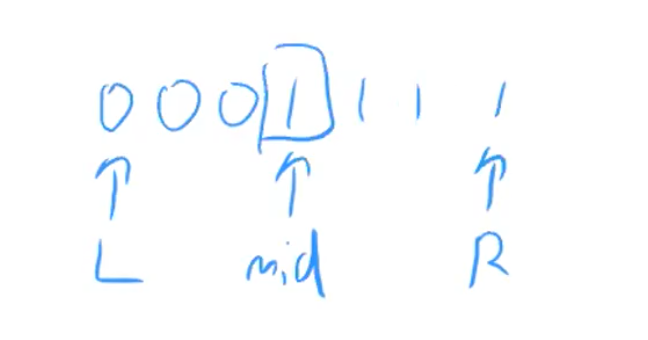 0 0 0 1 1 1 1
↑ ↑ ↑
L mid R